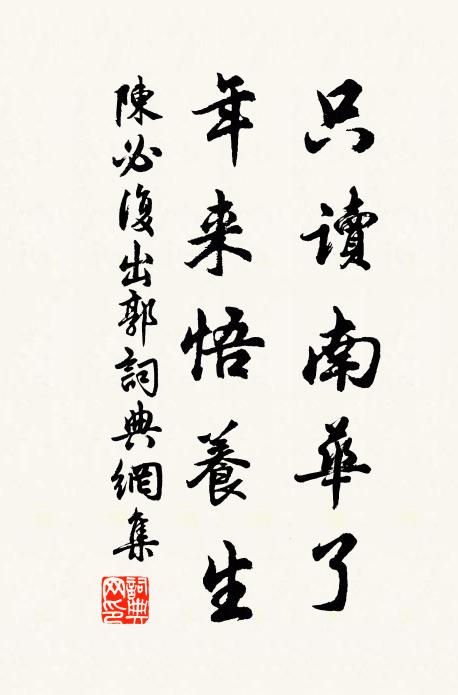 只讀南華了
年来悟養生
陳必復出郭詞典網集
詞典網印